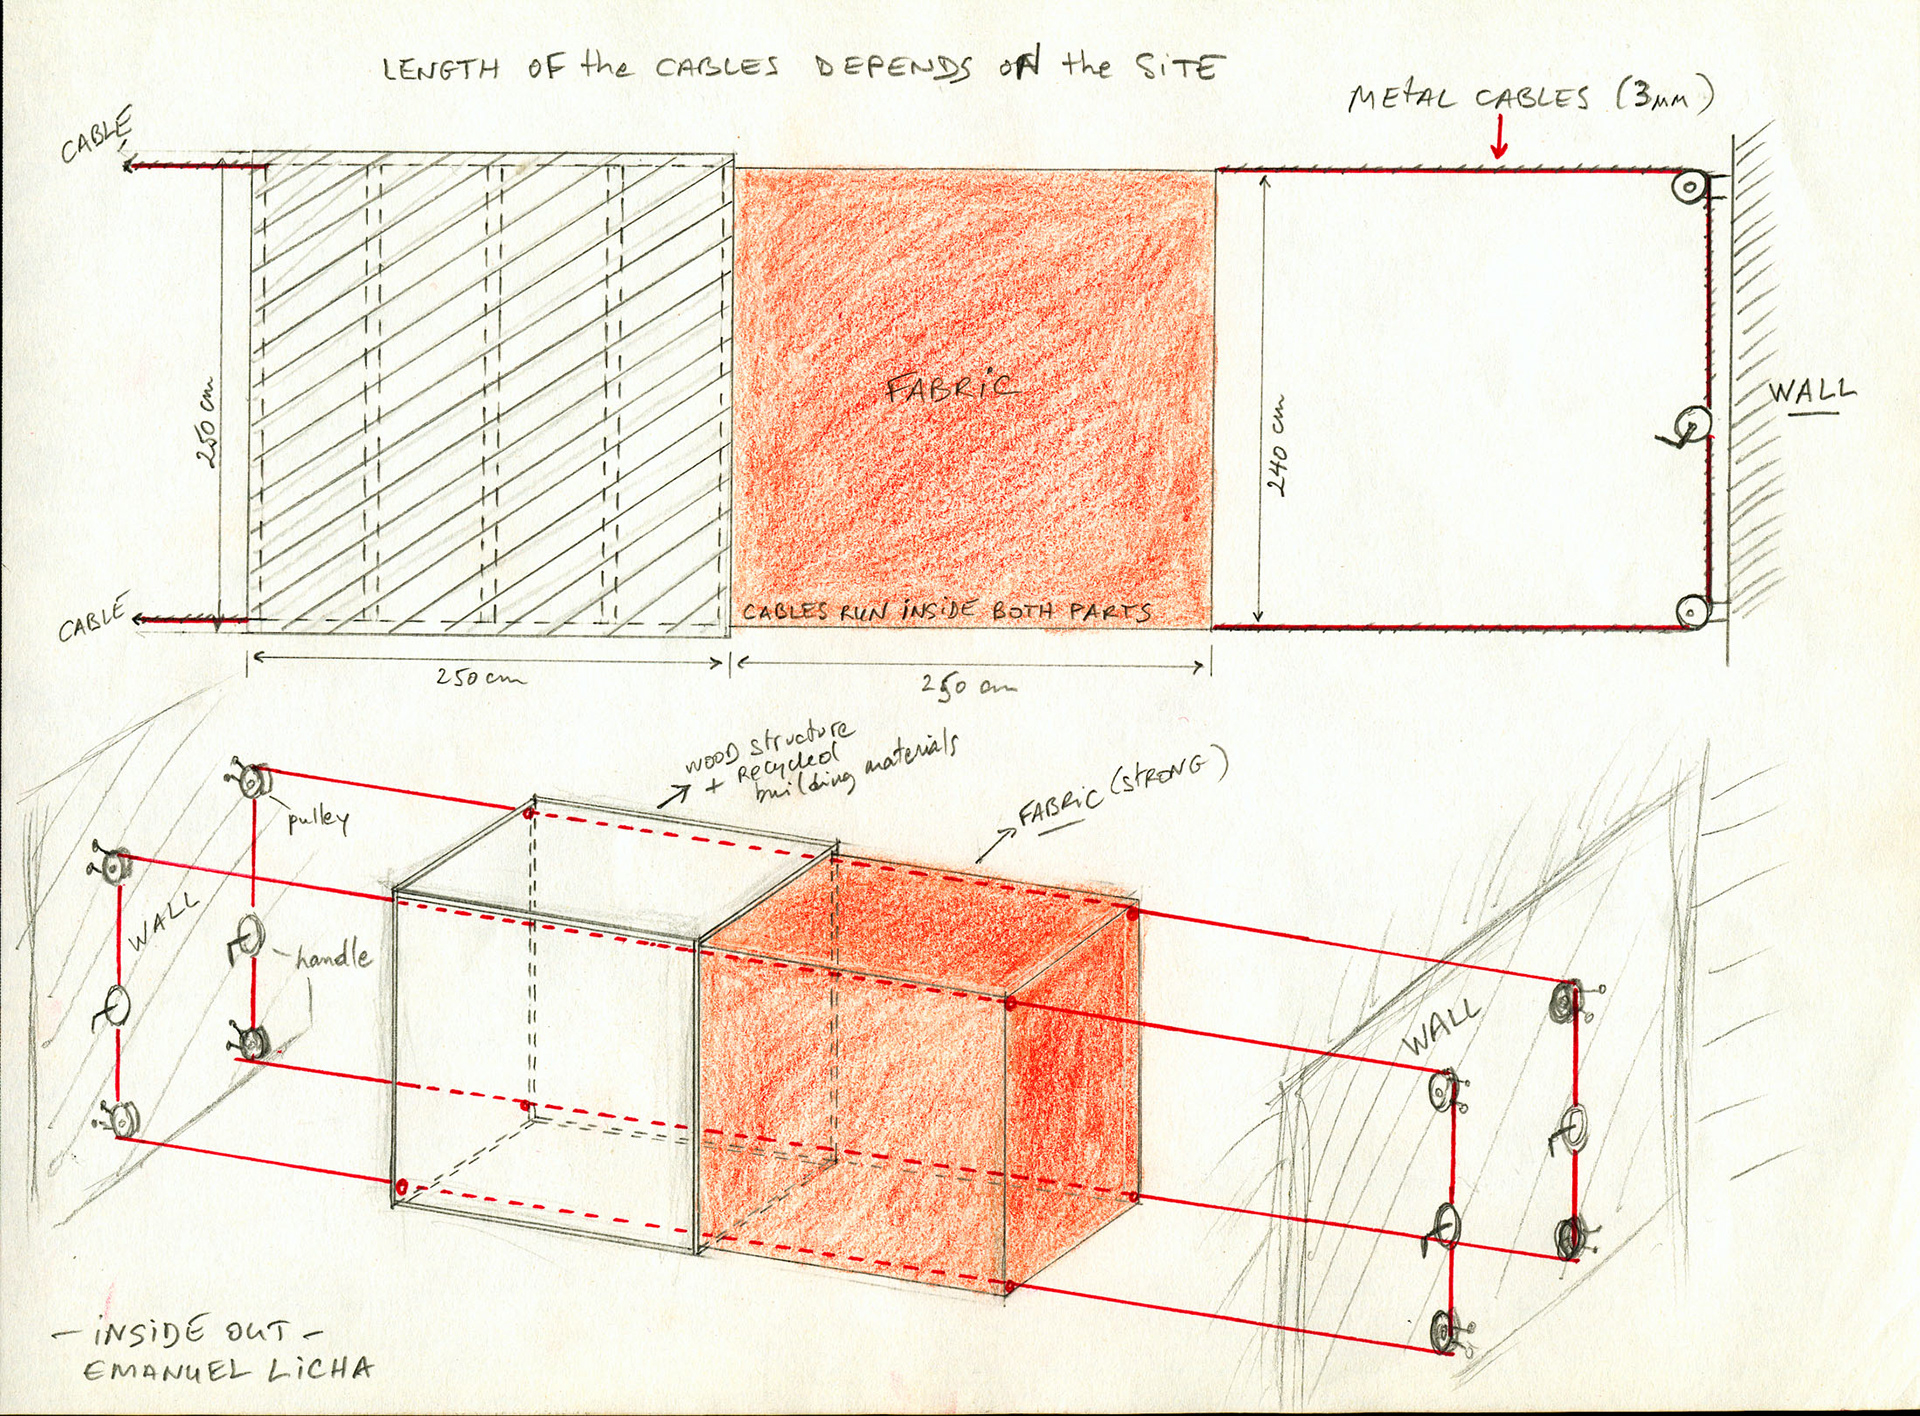 LENGTH OF the CABLES DEPENDS ON the SiTE
METAL CABLES (3mm)
CABLE
250 cm
FABRiC
240 cm
WALL
CABLE
CABLES RUN iNSiDE BOTH PARTS
250 cm
250 cm
WOOD structure
+ Recycled
building materials
FABRiC (STRONG)
pulley
WALL
handle
WALL
- iNSiDE OUT -
EMANUEL LiCHA